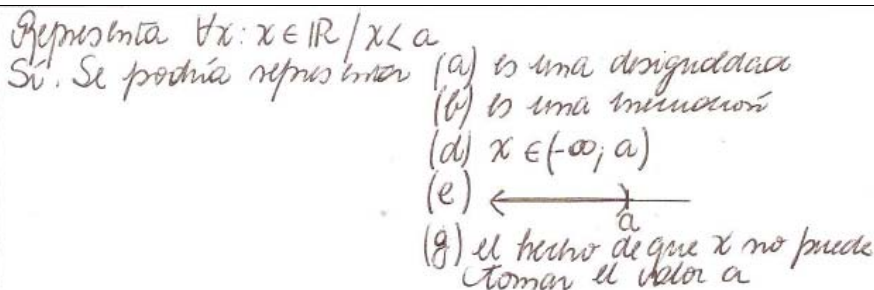 Representa ∀x: x ∈ ℝ / x < a
Sí. Se podría representar (a) es una desigualdad
(b) es una inecuación
(d) x ∈ (-∞; a)
(e)
a
(g) el hecho de que x no puede
tomar el valor a